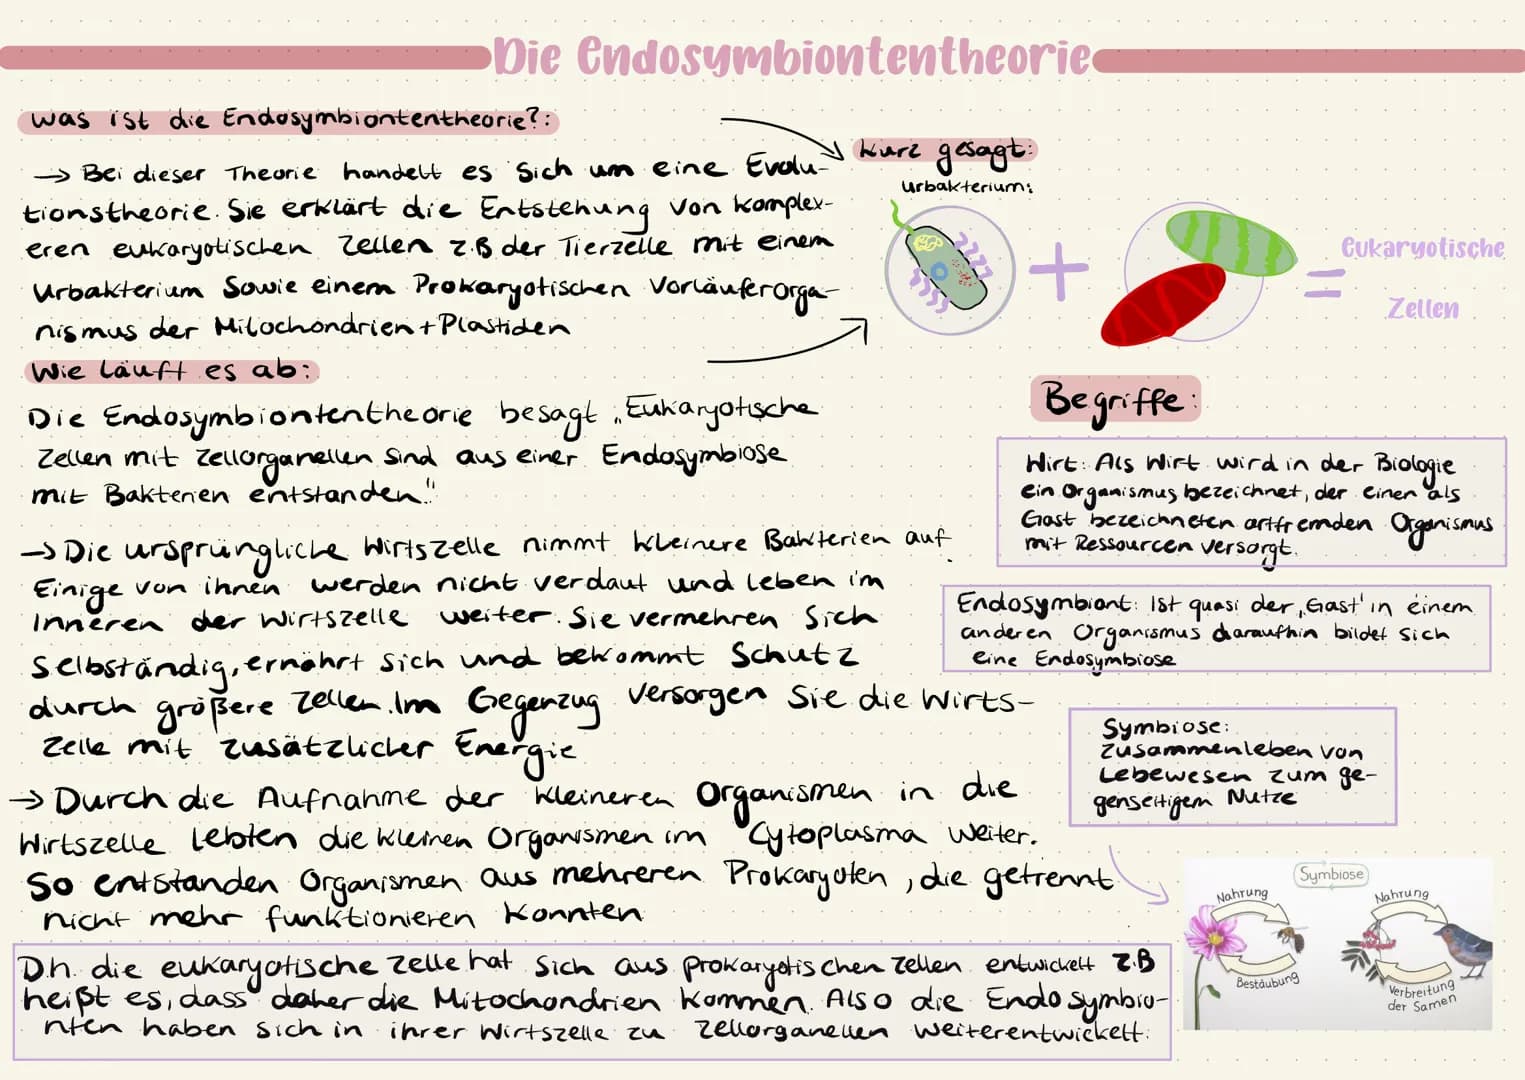 Die Endosymbiontentheorie
Was ist die Endosymbiontentheorie?:
→ Bei dieser Theorie handelt es sich um eine Evolu-
tionstheorie. Sie erklärt die Entstehung von komplex-
eren eukaryotischen Zellen z.B der Tierzelle mit einem
Urbakterium Sowie einem Prokaryotischen Vorläuferorga-
nismus der Mitochondrien + Plastiden
Kurz gesagt:
Urbakterium:
+
=
Eukaryotische
Zellen
Wie läuft es ab:
Die Endosymbiontentheorie besagt „Eukaryotische
Zellen mit Zellorganellen sind aus einer Endosymbiose
mit Bakterien entstanden."
→ Die ursprüngliche Wirtszelle nimmt kleinere Bakterien auf
Einige von ihnen werden nicht verdaut und leben im
Inneren der Wirtszelle weiter. Sie vermehren Sich
Selbständig, ernährt sich und bekommt Schutz
durch größere Zellen. Im Gegenzug versorgen Sie die Wirts-
Zelle mit zusätzlicher Energie
→ Durch die Aufnahme der kleineren Organismen in die
Wirtszelle lebten die kleinen Organismen im Cytoplasma weiter.
So entstanden Organismen aus mehreren Prokaryoten, die getrennt
nicht mehr funktionieren konnten
D.h. die eukaryotische Zelle hat sich aus prokaryotischen Zellen entwickelt z.B
heißt es, dass daher die Mitochondrien kommen. Also die Endosymbio-
nten haben sich in ihrer Wirtszelle zu Zellorganellen weiterentwickelt.
Begriffe:
Wirt: Als Wirt wird in der Biologie
ein Organismus bezeichnet, der einen als
Gast bezeichneten artfremden Organismus
mit Ressourcen versorgt.
Endosymbiont: Ist quasi der ‚Gast' in einem
anderen Organismus daraufhin bildet sich
eine Endosymbiose
Symbiose:
Zusammenleben von
Lebewesen zum ge-
genseitigem Nutze
Symbiose
Nahrung
Bestäubung
Nahrung
Verbreitung
der Samen